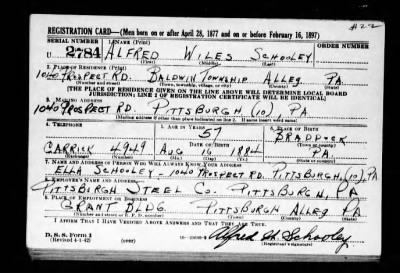 #22
REGISTRATION CARD—(Men born on or after April 28, 1877 and on or before February 16, 1897)
SERIAL NUMBER 1. NAME (Print) ORDER NUMBER
U 2784 ALFRED WILES SCHOOLEY
(First) (Middle) (Last)
2. PLACE OF RESIDENCE (Print)
1040 PROSPECT RD. BALDWIN TOWNSHIP ALLEG PA.
(Number and street) (Town, township, village, or city) (County) (State)
[THE PLACE OF RESIDENCE GIVEN ON THE LINE ABOVE WILL DETERMINE LOCAL BOARD
JURISDICTION; LINE 2 OF REGISTRATION CERTIFICATE WILL BE IDENTICAL]
3. MAILING ADDRESS
1040 PROSPECT RD. PITTSBURGH (10), PA
[Mailing address if other than place indicated on line 2. If same insert word same]
4. TELEPHONE 5. AGE IN YEARS 6. PLACE OF BIRTH
57 BRADDOCK
DATE OF BIRTH (Town or county)
CARRICK 4949 AUG 16 1884 PA.
(Exchange) (Number) (Mo.) (Day) (Yr.) (State or country)
7. NAME AND ADDRESS OF PERSON WHO WILL ALWAYS KNOW YOUR ADDRESS
ELLA SCHOOLEY - 1040 PROSPECT RD. PITTSBURGH, (10), PA
8. EMPLOYER'S NAME AND ADDRESS
PITTSBURGH STEEL CO. PITTSBURGH, PA
9. PLACE OF EMPLOYMENT OR BUSINESS
GRANT BLDG. PITTSBURGH ALLEG PA
(Number and street or R. F. D. number) (Town) (County) (State)
I AFFIRM THAT I HAVE VERIFIED ABOVE ANSWERS AND THAT THEY ARE TRUE.
D. S. S. Form 1
(Revised 4-1-42) (over) Alfred W Schooley
(Registrant's signature)